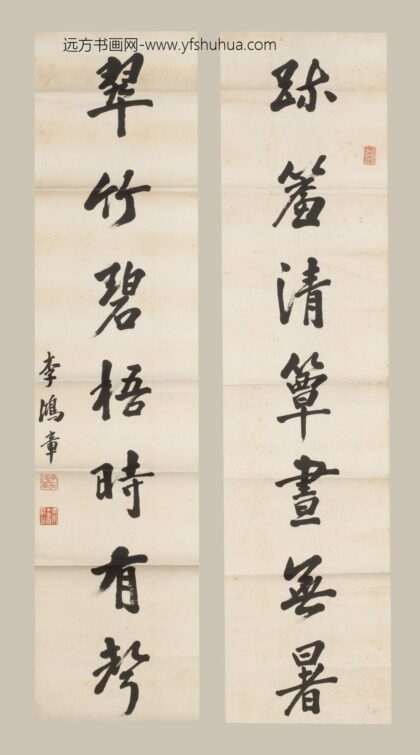 远方书画网-www.yfshuhua.com
疎簾清簟晝無暑
翠竹碧梧時有聲
李鴻章